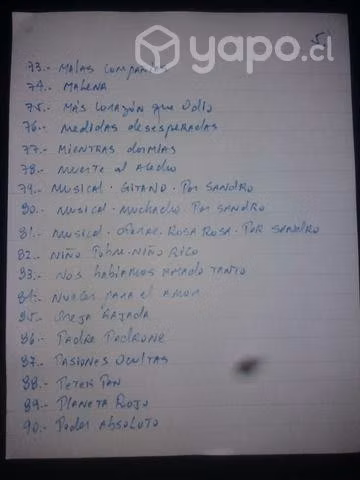 yapo.cl
5
73.- MALAS COMPAÑIAS
74.- MALENA
75.- MÁS CORAZÓN que ODIO
76.- medidas desesperadas
77.- MIENTRAS DORMIAS
78.- MUERTE al ACECHO
79.- MUSICAL - GITANO - POR SANDRO
80.- MUSICAL - MUCHACHO - POR SANDRO
81.- MUSICAL - ROSA ROSA - POR SANDRO
82.- NIÑO POBRE - NIÑO RICO
83.- NOS HABIAMOS AMADO TANTO
84.- PARA el AMOR
85.- OREJA RAJADA
86.- PADRE PADRONE
87.- PASIONES OCULTAS
88.- PETER PAN
89.- PLANETA ROJO
90.- Poder ABSOLUTO